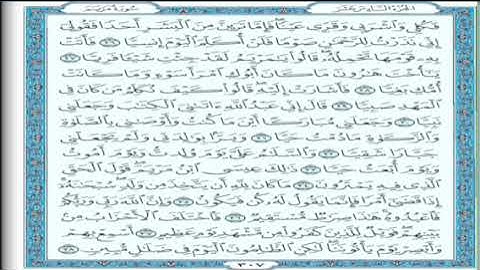 الجزء السادس عشر
سورة مريم
فَكُلِي وَٱشْرَبِي وَقَرِّي عَيْنًا فَإِمَّا تَرَيِنَّ مِنَ ٱلْبَشَرِ أَحَدًا فَقُولِيٓ
إِنِّي نَذَرْتُ لِلرَّحْمَٰنِ صَوْمًا فَلَنْ أُكَلِّمَ ٱلْيَوْمَ إِنسِيًّا ٢٦ فَأَتَتْ
بِهِۦ قَوْمَهَا تَحْمِلُهُۥ قَالُوا۟ يَٰمَرْيَمُ لَقَدْ جِئْتِ شَيْـًٔا فَرِيًّا ٢٧
يَٰٓأُخْتَ هَٰرُونَ مَا كَانَ أَبُوكِ ٱمْرَأَ سَوْءٍ وَمَا كَانَتْ
أُمُّكِ بَغِيًّا ٢٨ فَأَشَارَتْ إِلَيْهِ قَالُوا۟ كَيْفَ نُكَلِّمُ مَن كَانَ فِي
ٱلْمَهْدِ صَبِيًّا ٢٩ قَالَ إِنِّي عَبْدُ ٱللَّهِ ءَاتَىٰنِيَ ٱلْكِتَٰبَ وَجَعَلَنِي
نَبِيًّا ٣٠ وَجَعَلَنِي مُبَارَكًا أَيْنَ مَا كُنتُ وَأَوْصَٰنِي بِٱلصَّلَوٰةِ
وَٱلزَّكَوٰةِ مَا دُمْتُ حَيًّا ٣١ وَبَرًّۢا بِوَٰلِدَتِي وَلَمْ يَجْعَلْنِي
جَبَّارًا شَقِيًّا ٣٢ وَٱلسَّلَٰمُ عَلَيَّ يَوْمَ وُلِدتُّ وَيَوْمَ أَمُوتُ
وَيَوْمَ أُبْعَثُ حَيًّا ٣٣ ذَٰلِكَ عِيسَى ٱبْنُ مَرْيَمَ قَوْلَ ٱلْحَقِّ
ٱلَّذِي فِيهِ يَمْتَرُونَ ٣٤ مَا كَانَ لِلَّهِ أَن يَتَّخِذَ مِن وَلَدٍ سُبْحَٰنَهُۥٓ
إِذَا قَضَىٰٓ أَمْرًا فَإِنَّمَا يَقُولُ لَهُۥ كُن فَيَكُونُ ٣٥ وَإِنَّ ٱللَّهَ رَبِّي وَرَبُّكُمْ
فَٱعْبُدُوهُ هَٰذَا صِرَٰطٌ مُّسْتَقِيمٌ ٣٦ فَٱخْتَلَفَ ٱلْأَحْزَابُ مِنۢ
بَيْنِهِمْ فَوَيْلٌ لِّلَّذِينَ كَفَرُوا۟ مِن مَّشْهَدِ يَوْمٍ عَظِيمٍ ٣٧ أَسْمِعْ بِهِمْ
وَأَبْصِرْ يَوْمَ يَأْتُونَنَا لَٰكِنِ ٱلظَّٰلِمُونَ ٱلْيَوْمَ فِي ضَلَٰلٍ مُّبِينٍ ٣٨
٣٠٧